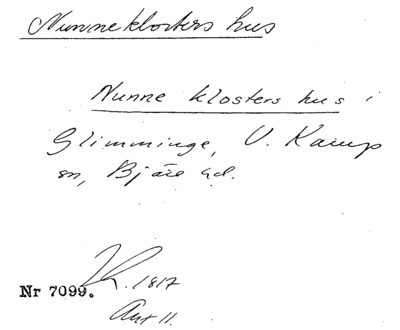 Nunneklosters hus
Nunne klosters hus i
Glimminge, V. Karup
sn, Bjäre hd.
Nr 7099. 1817
Ant 11.